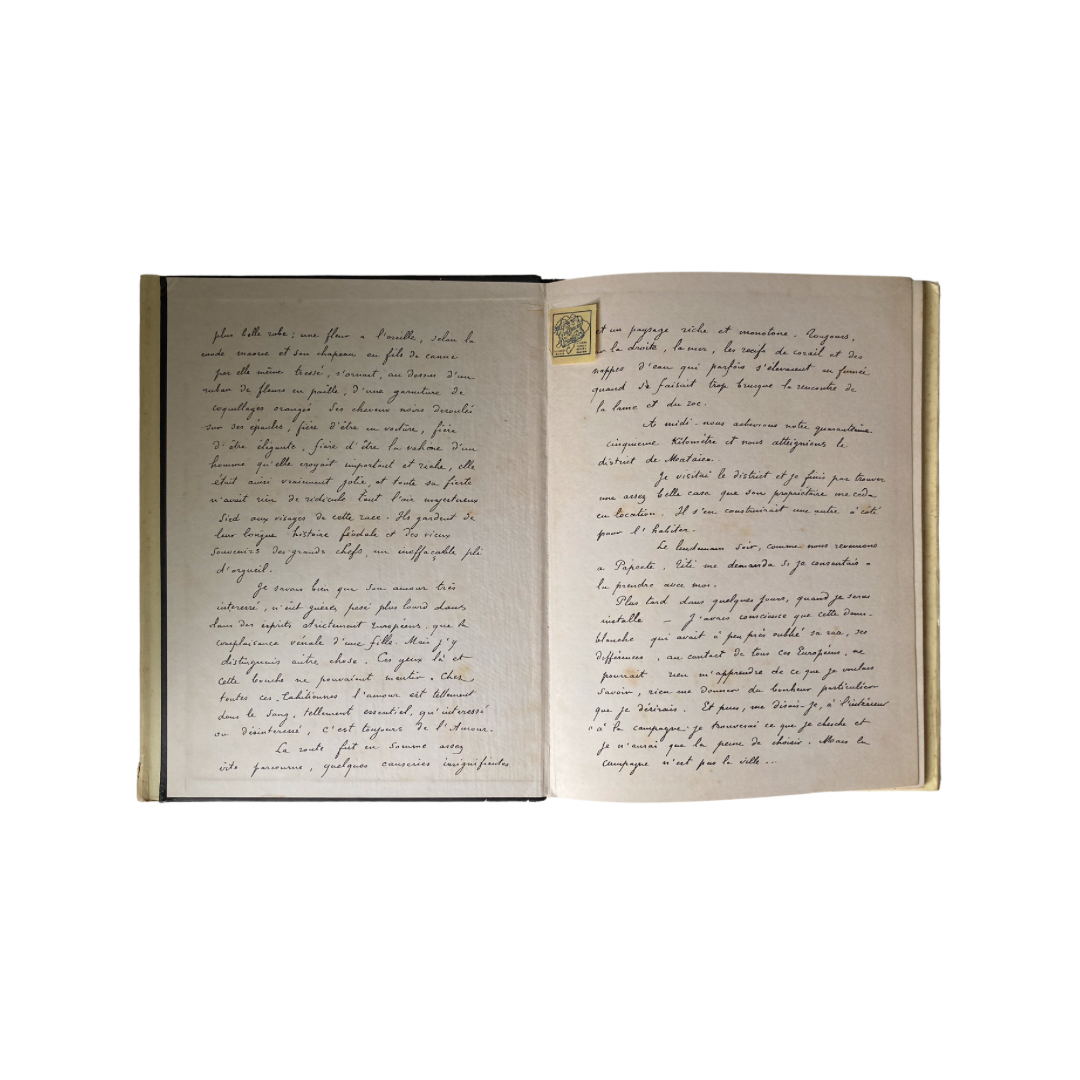 plus belle robe; une fleur a l'oreille, selon la
mode maorie et son chapeau en fils de canne
par elle même tressé, s'ornait, au dessus d'un
ruban de fleurs en paille, d'une garniture de
coquillages orangés Ses cheveux noirs deroulés
sur ses épaules, fière d'être en voiture, fière
d'être élégante, fière d'être la vahine d'un
homme qu'elle croyait important et riche, elle
était ainsi vraiment jolie, et toute sa fierté
n'avait rien de ridicule tant l'air majestueux
sied aux visages de cette race. Ils gardent de
leur longue histoire féodale et des vieux
souvenirs des grands chefs, un ineffaçable pli
d'orgueil.
Je savais bien que son amour très
interessé, n'eut guères pesé plus lourd dans
dans des esprits strictement Européens, que la
complaisance vénale d'une fille. Mais j'y
distinguais autre chose. Ces yeux là et
cette bouche ne pouvaient mentir. Chez
toutes ces Tahitiennes l'amour est tellement
dans le sang, tellement essentiel, qu'interessé
ou désinteressé, c'est toujours de l'Amour.
La route fut en somme assez
vite parcourue, quelques causeries insignifiantes
et un paysage riche et monotone. Toujours,
sur la droite, la mer, les recifs de corail et des
nappes d'eau qui parfois s'élevaient en fumée
quand se faisait trop brusque la rencontre de
la lame et du roc.
A midi nous achevions notre quarantième
cinquieme Kilomètre et nous atteignions le
district de Mataiea.
Je visitai le district et je finis par trouver
une assez belle case que son propriétaire me céda
en location. Il s'en construirait une autre à côté
pour l'habiter.
Le lendemain soir, comme nous revenions
a Papeete, Titi me demanda si je consentais à
la prendre avec moi.
Plus tard dans quelques jours, quand je serai
installé – J'avais conscience que cette demi-
blanche qui avait à peu près oublié sa race, ses
différences, au contact de tous ces Européens, ne
pourrait rien m'apprendre de ce que je voulais
savoir, rien me donner du bonheur particulier
que je désirais. Et puis, me disais-je, à l'intérieur
à la campagne je trouverai ce que je cherche et
je n'aurai que la peine de choisir. Mais la
campagne n'est pas la ville ...